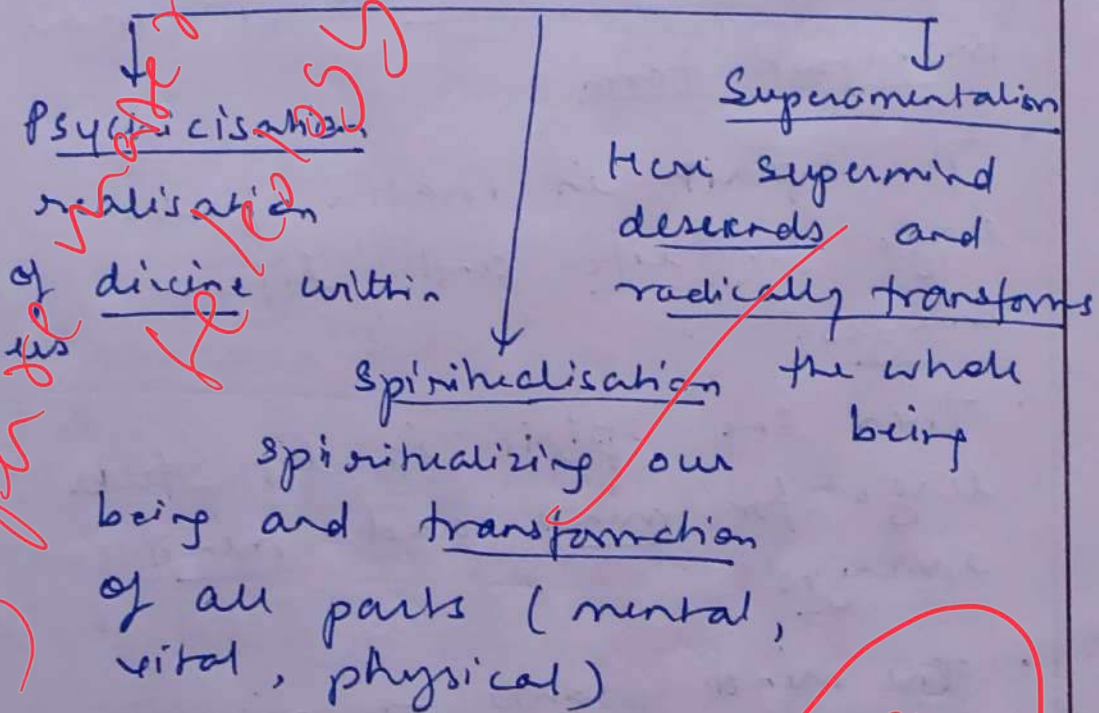 Psychicisation
realisation
of divine within
us
Spiritualisation
spiritualizing our
being and transformation
of all parts (mental,
vital, physical)
Supramentalion
Here supermind
descends and
radically transforms
the whole
being